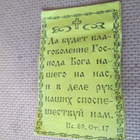 Да будет бла-
говоление Гос-
пода Бога на-
шего на нас,
и в деле рук
наших споспе-
шествуй нам.
Пс. 89, Ст. 17